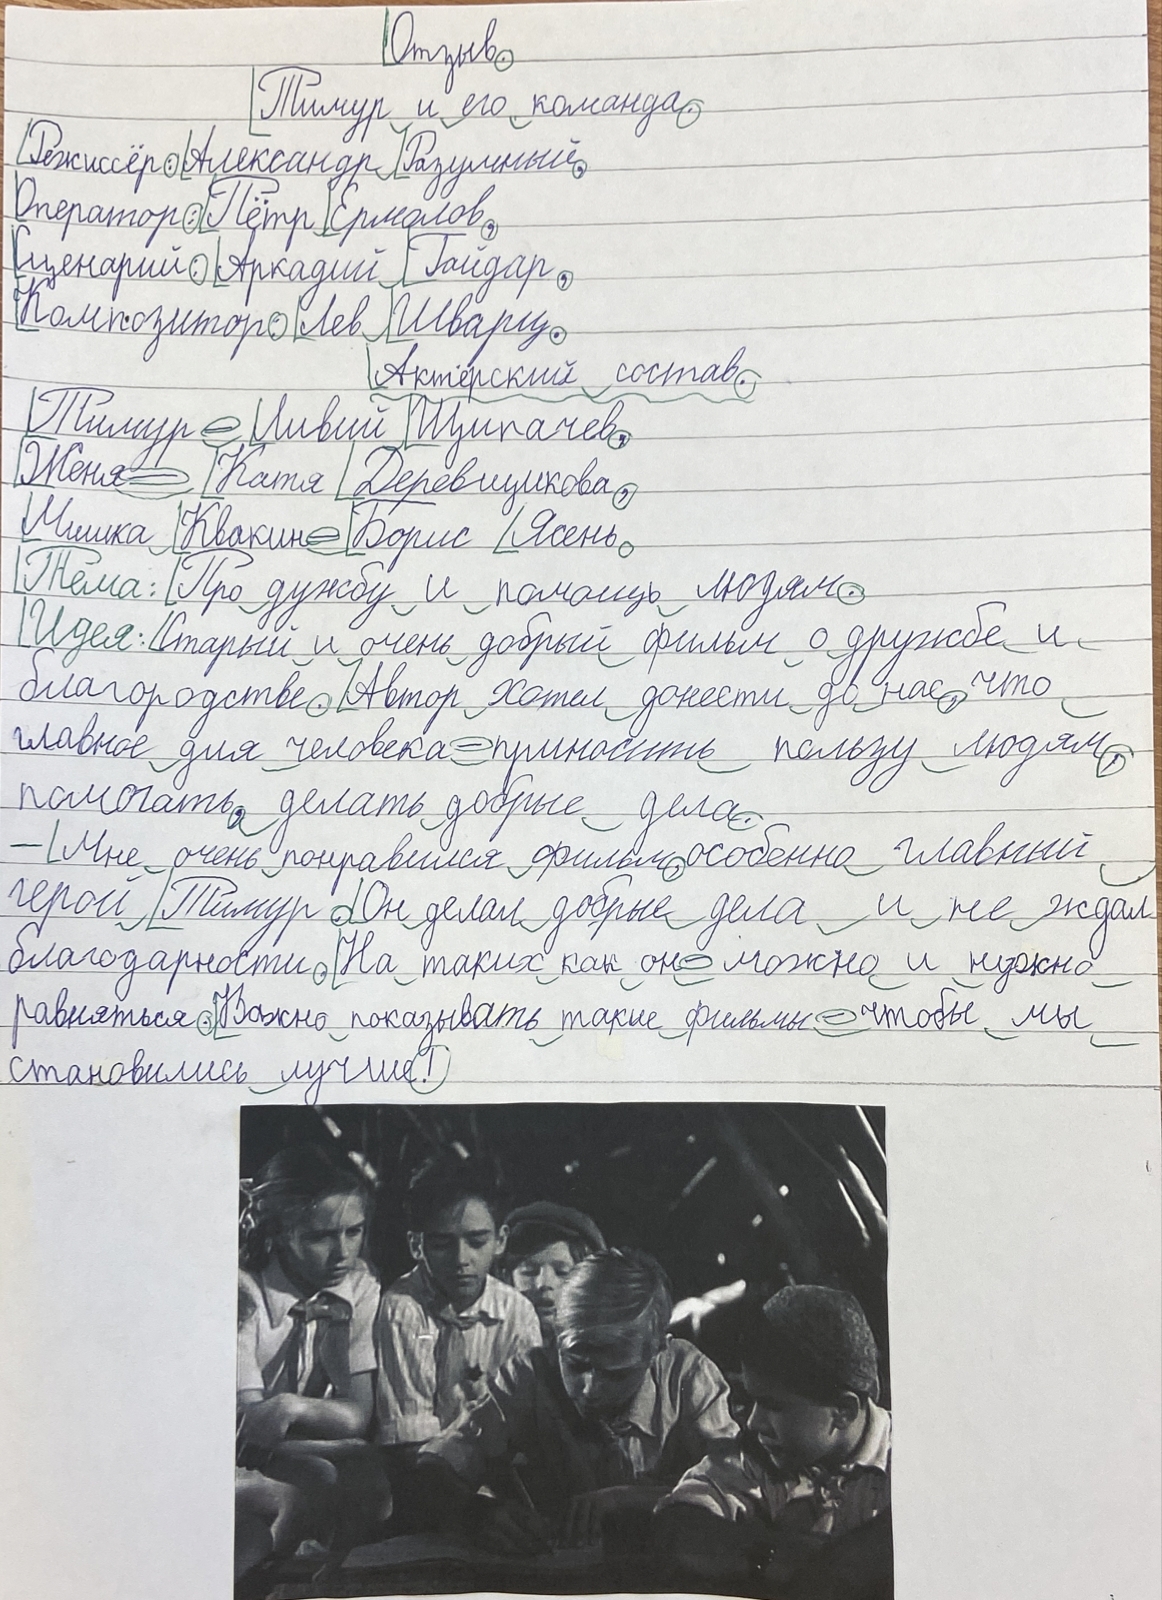 Отзыв.
Тимур и его команда.
Режиссёр: Александр Разумный,
Оператор: Пётр Ермолов,
Сценарий: Аркадий Гайдар,
Композитор: Лев Шварц.
Актёрский состав.
Тимур - Ливий Щипачев,
Женя - Катя Деревщикова,
Мишка Квакин - Борис Ясень.
Тема: Про дужбу и помощь людям.
Идея: Старый и очень добрый фильм о дружбе и
благородстве. Автор хотел донести до нас, что
главное для человека - приносить пользу людям,
помогать, делать добрые дела.
- Мне очень понравился фильм, особенно главный
герой Тимур. Он делал добрые дела и не ждал
благодарности. На таких как он - можно и нужно
равняться. Важно показывать такие фильмы - чтобы мы
становились лучше!